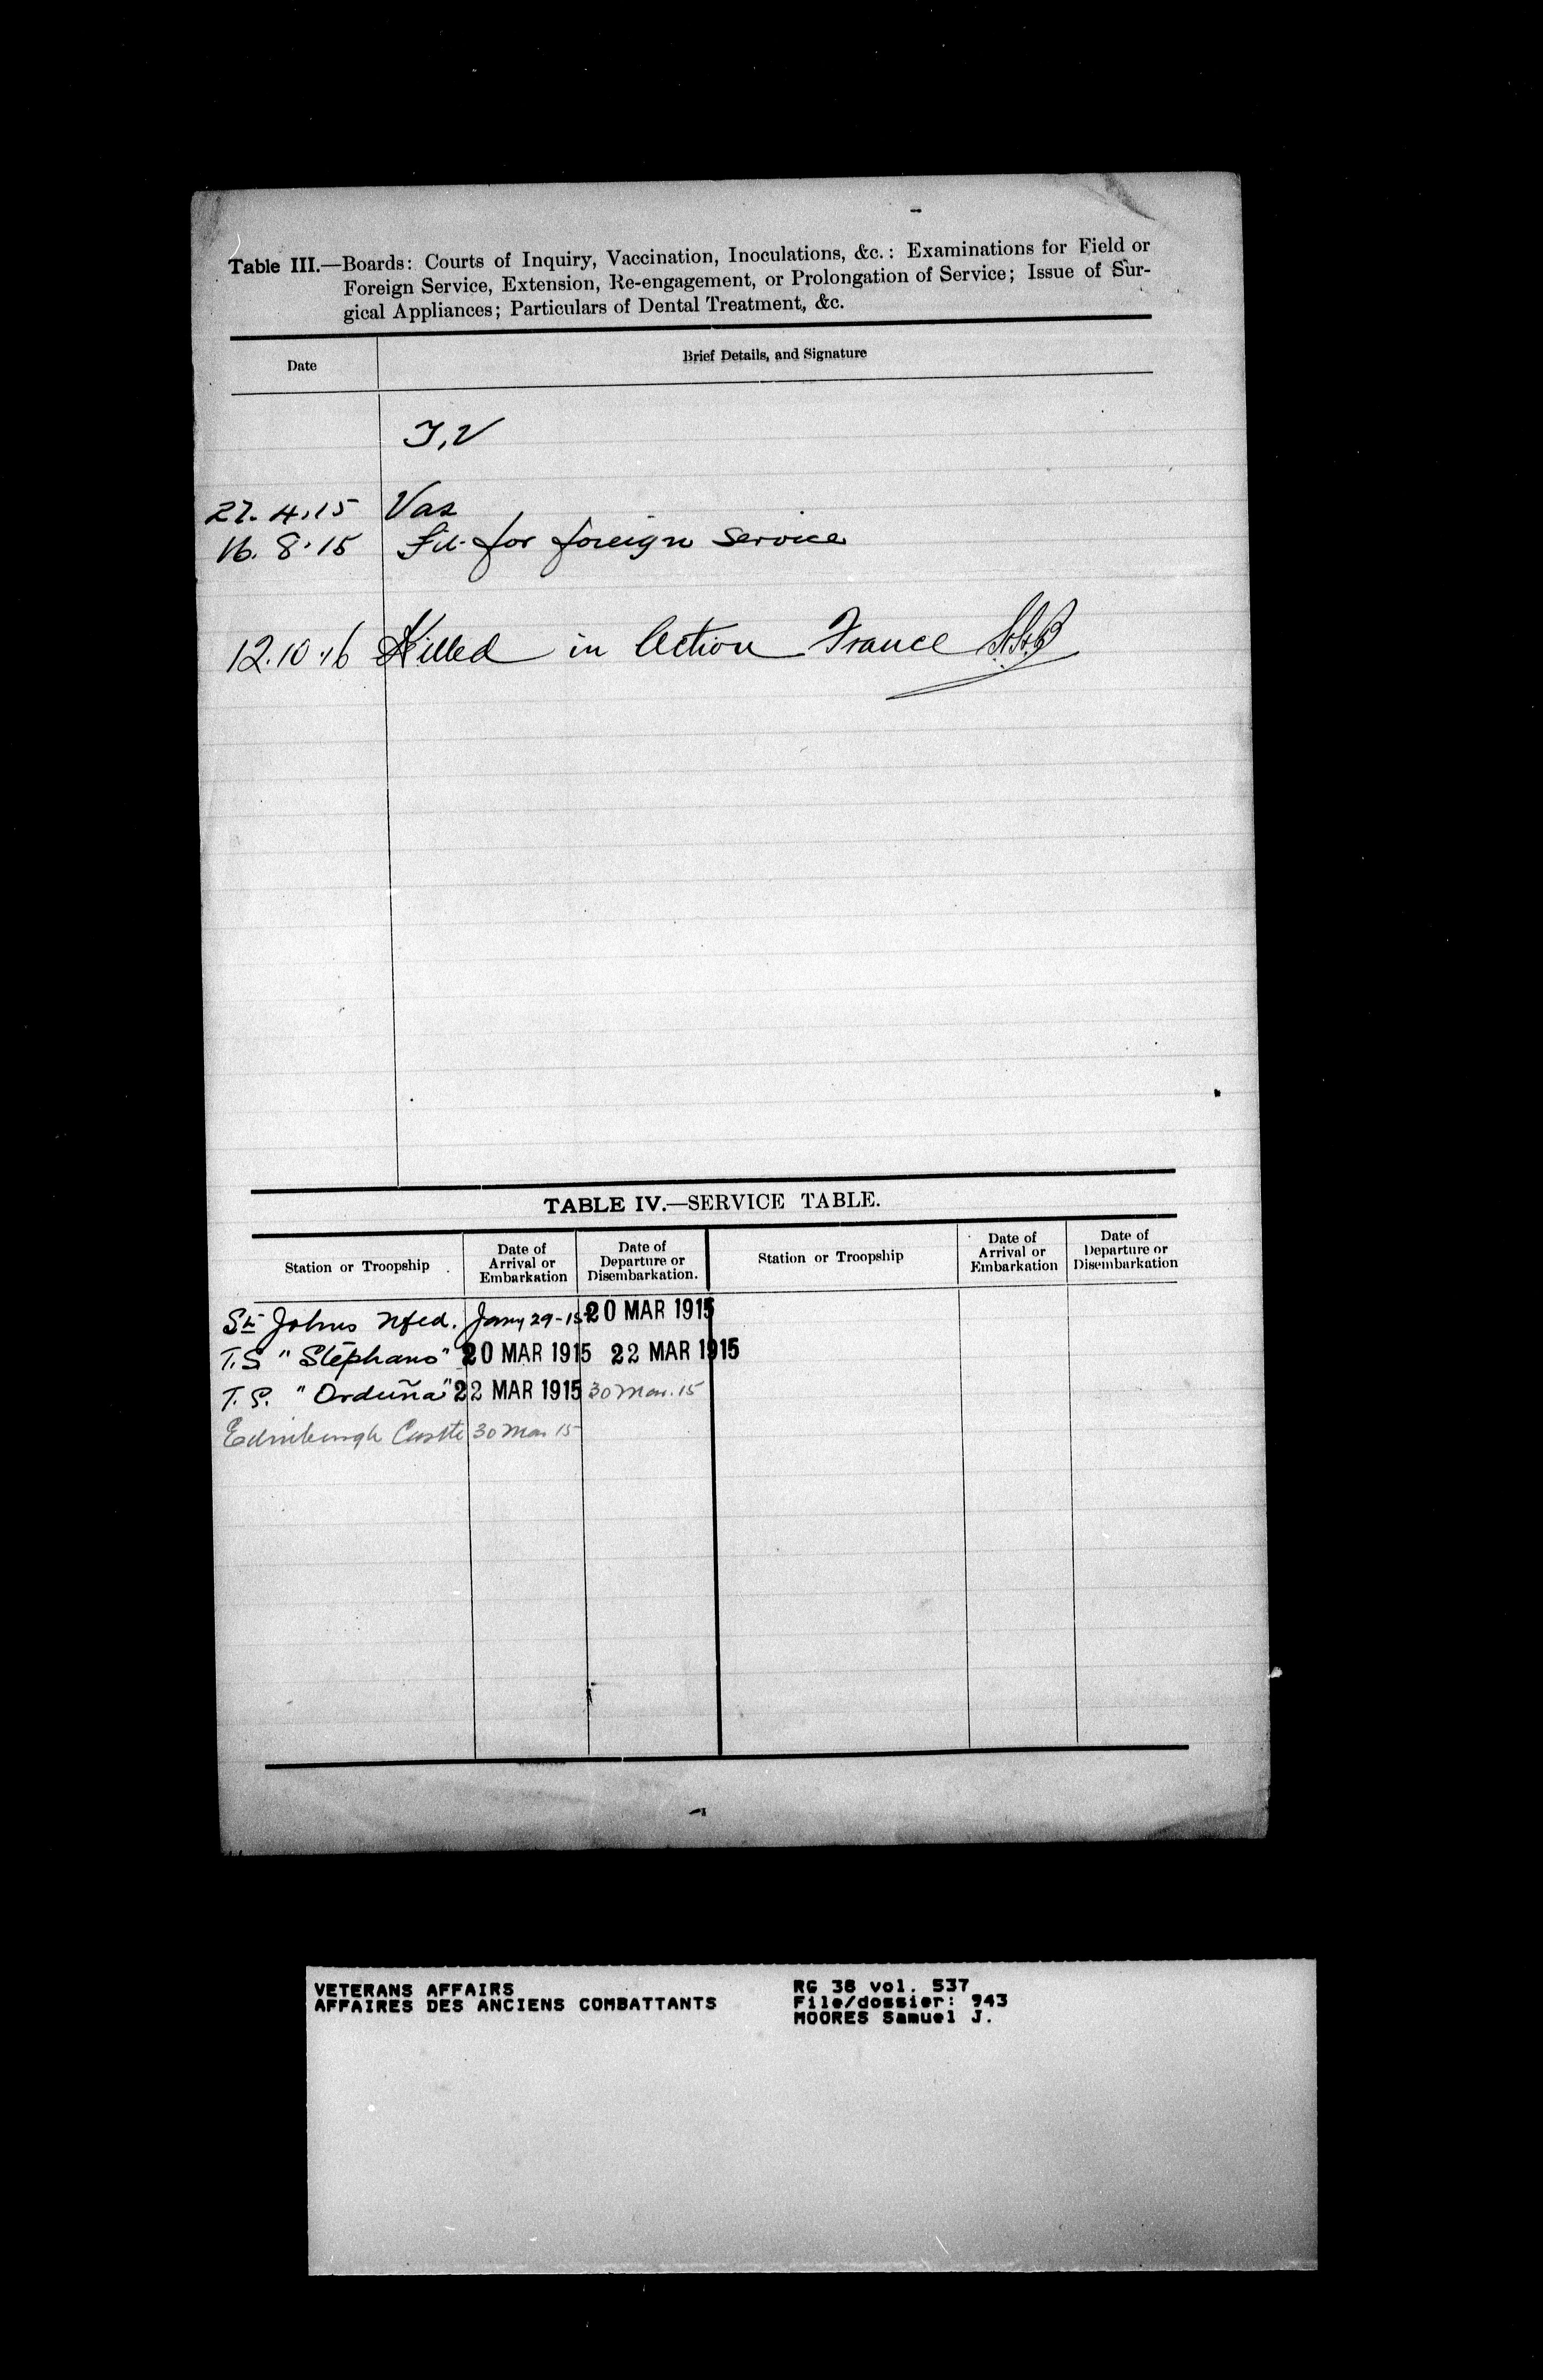 Table III.—Boards: Courts of Inquiry, Vaccination, Inoculations, &c.: Examinations for Field or
Foreign Service, Extension, Re-engagement, or Prolongation of Service; Issue of Sur-
gical Appliances; Particulars of Dental Treatment, &c.
Date Brief Details, and Signature
27.4.15
16.8.15 Fit for foreign Service
12.10.16 Killed in Action France
TABLE IV.—SERVICE TABLE.
Station or Troopship Date of Arrival or Embarkation Date of Departure or Disembarkation. Station or Troopship Date of Arrival or Embarkation Date of Departure or Disembarkation
St Johns Nfld. Jany 29-15 20 MAR 1915
T.S "Stephano" 20 MAR 1915 22 MAR 1915
T.S. "Orduña" 22 MAR 1915 30 Mar. 15
Edinburgh Castle 30 Mar 15
VETERANS AFFAIRS RG 38 vol. 537
AFFAIRES DES ANCIENS COMBATTANTS File/dossier: 943
MOORES Samuel J.